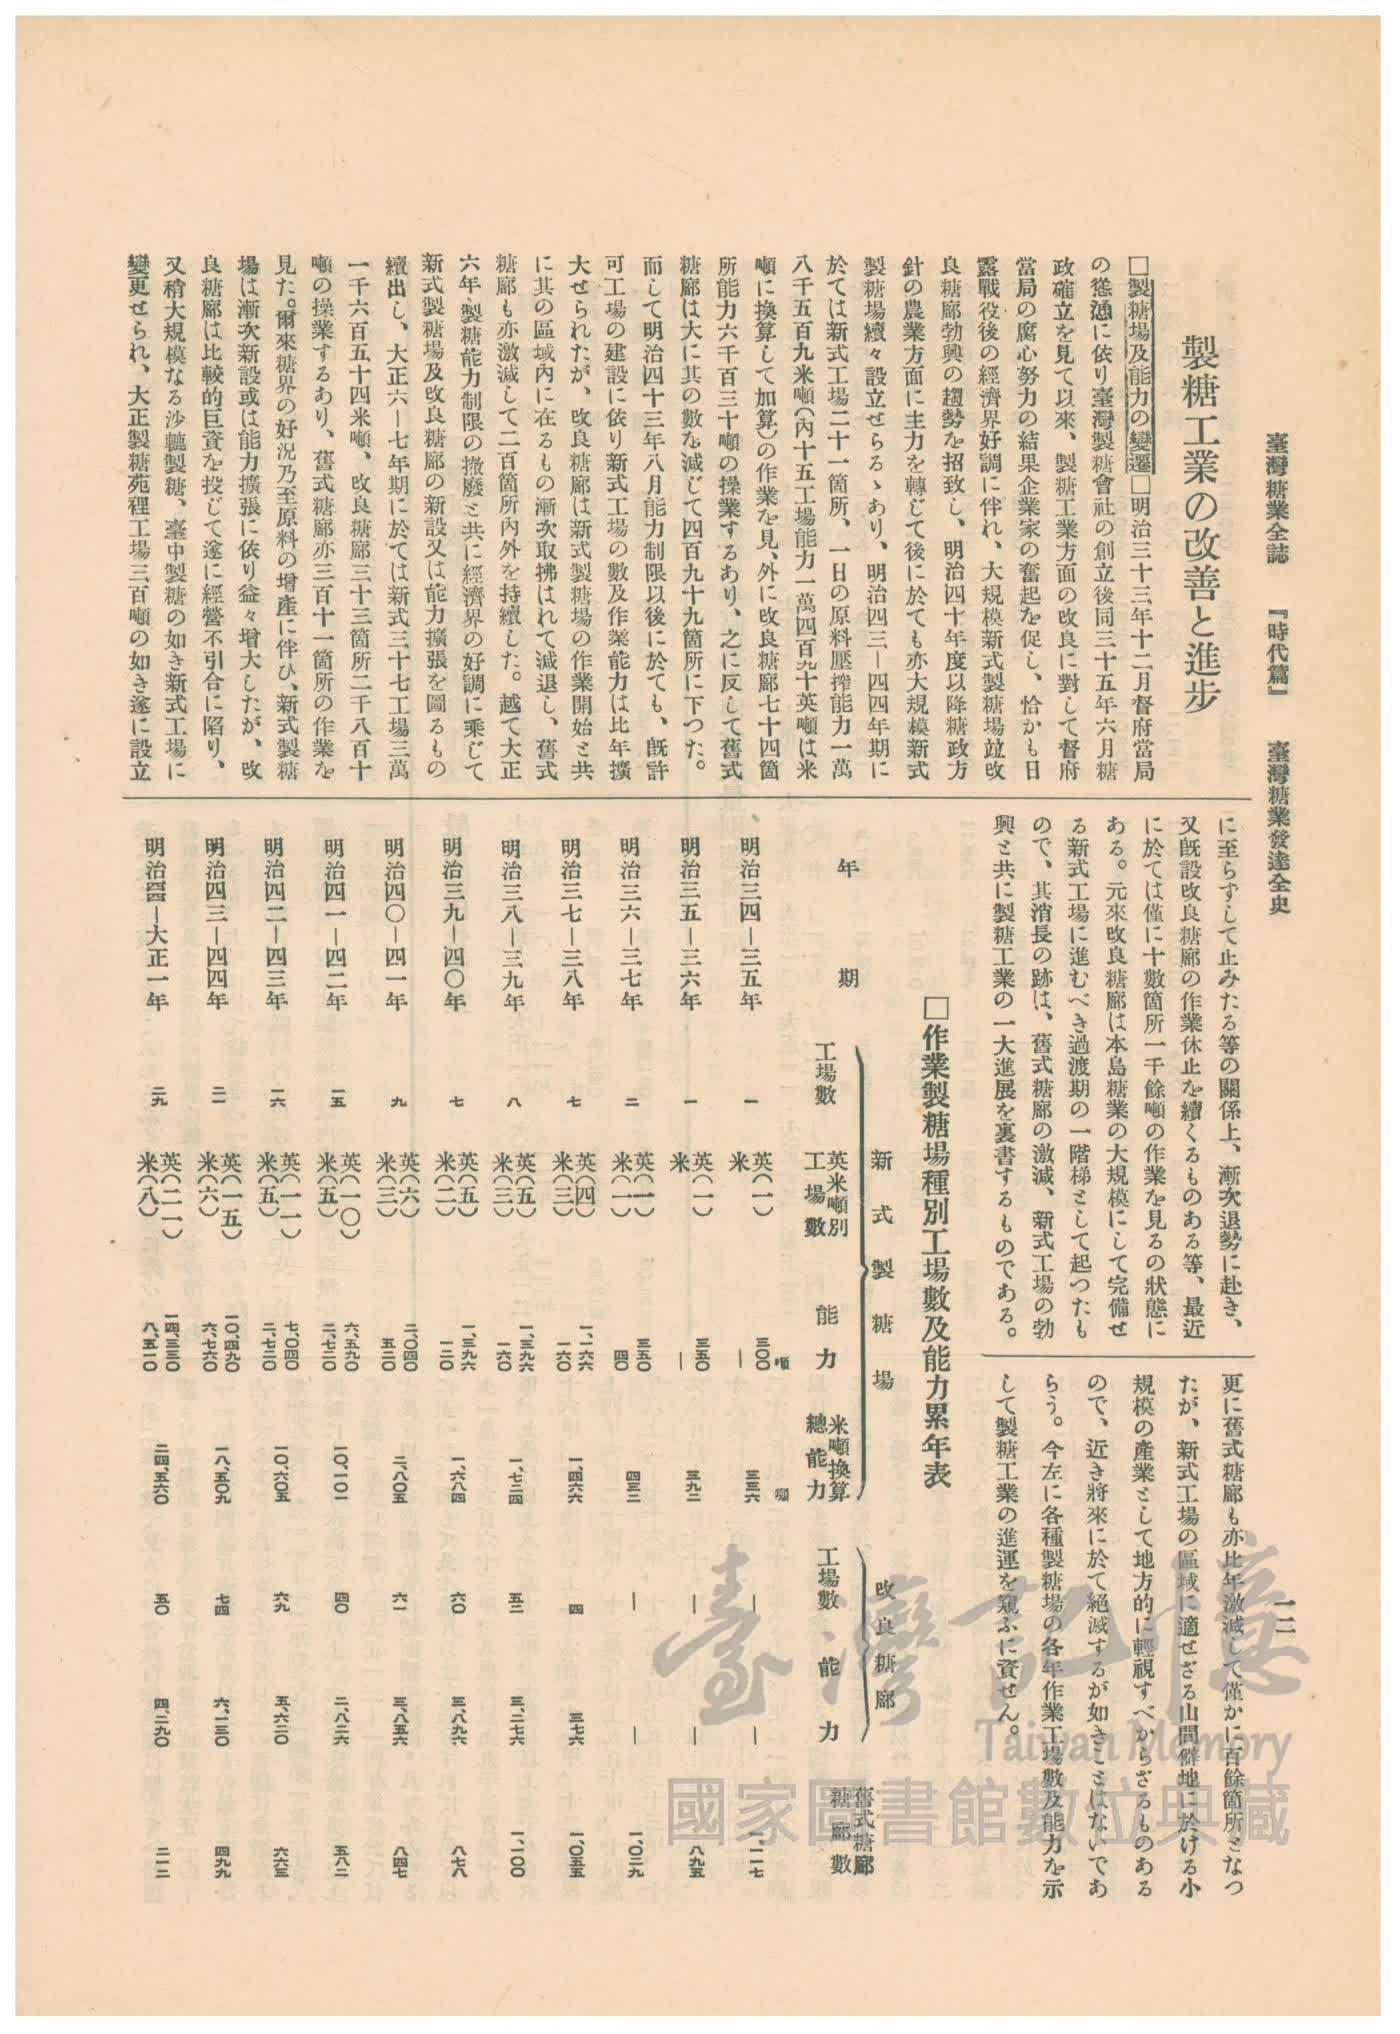 臺灣糖業全誌　『時代篇』　臺灣糖業發達全史
一二
製糖工業の改善と進步
□製糖場及能力の變遷□明治三十三年十二月督府當局
の慫慂に依り臺灣製糖會社の創立後同三十五年六月糖
政確立を見て以來、製糖工業方面の改良に對して督府
當局の腐心努力の結果企業家の奮起を促し、恰かも日
露戰役後の經濟界好調に伴れ、大規模新式製糖場竝改
良糖廍勃興の趨勢を招致し、明治四十年度以降糖政方
針の農業方面に主力を轉じて後に於ても亦大規模新式
製糖場續々設立せらるゝあり、明治四三―四四年期に
於ては新式工場二十一箇所、一日の原料壓搾能力一萬
八千五百九米噸(內十五工場能力一萬四百九十英噸は米
噸に換算して加算)の作業を見、外に改良糖廍七十四箇
所能力六千百三十噸の操業するあり、之に反して舊式
糖廍は大に其の數を減じて四百九十九箇所に下つた。
而して明治四十三年八月能力制限以後に於ても、旣許
可工場の建設に依り新式工場の數及作業能力は比年擴
大せられたが、改良糖廍は新式製糖場の作業開始と共
に其の區域內に在るもの漸次取拂はれて減退し、舊式
糖廍も亦激減して二百箇所內外を持續した。越て大正
六年、製糖能力制限の撤廢と共に經濟界の好調に乘じて
新式製糖場及改良糖廍の新設又は能力擴張を圖るもの
續出し、大正六―七年期に於ては新式三十七工場三萬
一千六百五十四米噸、改良糖廍三十三箇所二千八百十
噸の操業するあり、舊式糖廍亦三百十一箇所の作業を
見た。爾來糖界の好況乃至原料の增產に伴ひ、新式製糖
場は漸次新設或は能力擴張に依り益々增大したが、改
良糖廍は比較的巨資を投じて遂に經營不引合に陷り、
又稍大規模なる沙轆製糖、臺中製糖の如き新式工場に
變更せられ、大正製糖苑裡工場三百噸の如き遂に設立
に至らずして止みたる等の關係上、漸次退勢に赴き、
又旣設改良糖廍の作業休止を續くるものある等、最近
に於ては僅に十數箇所一千餘噸の作業を見るの狀態に
ある。元來改良糖廍は本島糖業の大規模にして完備せ
る新式工場に進むべき過渡期の一階梯として起つたも
ので、其消長の跡は、舊式糖廍の激減、新式工場の勃
興と共に製糖工業の一大進展を裏書するものである。
更に舊式糖廍も亦比年激減して僅かに百餘箇所となつ
たが、新式工場の區域に適せざる山間僻地に於ける小
規模の產業として地方的に輕視すべからざるものある
ので、近き將來に於て絕滅するが如きことはないであ
らう。今左に各種製糖場の各年作業工場數及能力を示
して製糖工業の進運を窺ふに資せん。
□作業製糖場種別工場數及能力累年表
年期　新式製糖場　改良糖廍　舊式糖廍數
工場數　英米噸別工場數　能力　米噸換算總能力　工場數　能力
明治三四―三五年　一　英(一)米　三〇〇噸　―　三三六噸　―　―　一、一一七
明治三五―三六年　一　英(一)米　三五〇　―　三九二　―　―　八九五
明治三六―三七年　二　英(一)米(一)　三五〇　四〇　四三二　―　―　一、〇二九
明治三七―三八年　七　英(四)米(三)　一、一六六　一六〇　一、四六六　四　三七六　一、〇五五
明治三八―三九年　八　英(五)米(三)　一、三九六　一六〇　一、七二四　五二　三、二七六　一、一〇〇
明治三九―四〇年　七　英(五)米(二)　一、三九六　一二〇　一、六八四　六〇　三、八九六　八七八
明治四〇―四一年　九　英(六)米(三)　二、〇四〇　五二〇　二、八〇五　六一　三、八五六　八四七
明治四一―四二年　一五　英(一〇)米(五)　六、五九〇　二、七二〇　一〇、一〇一　四〇　二、八二六　五八二
明治四二―四三年　一六　英(一一)米(五)　七、〇四〇　二、七二〇　一〇、六〇五　六九　五、六二〇　六六三
明治四三―四四年　二一　英(一五)米(六)　一〇、四九〇　六、七六〇　一八、五〇九　七四　六、一三〇　四九九
明治四四―大正一年　二九　英(二一)米(八)　一四、三三〇　八、五一〇　二四、五六〇　五〇　四、二九〇　二一二
臺灣記憶
Taiwan Memory
國家圖書館數位典藏